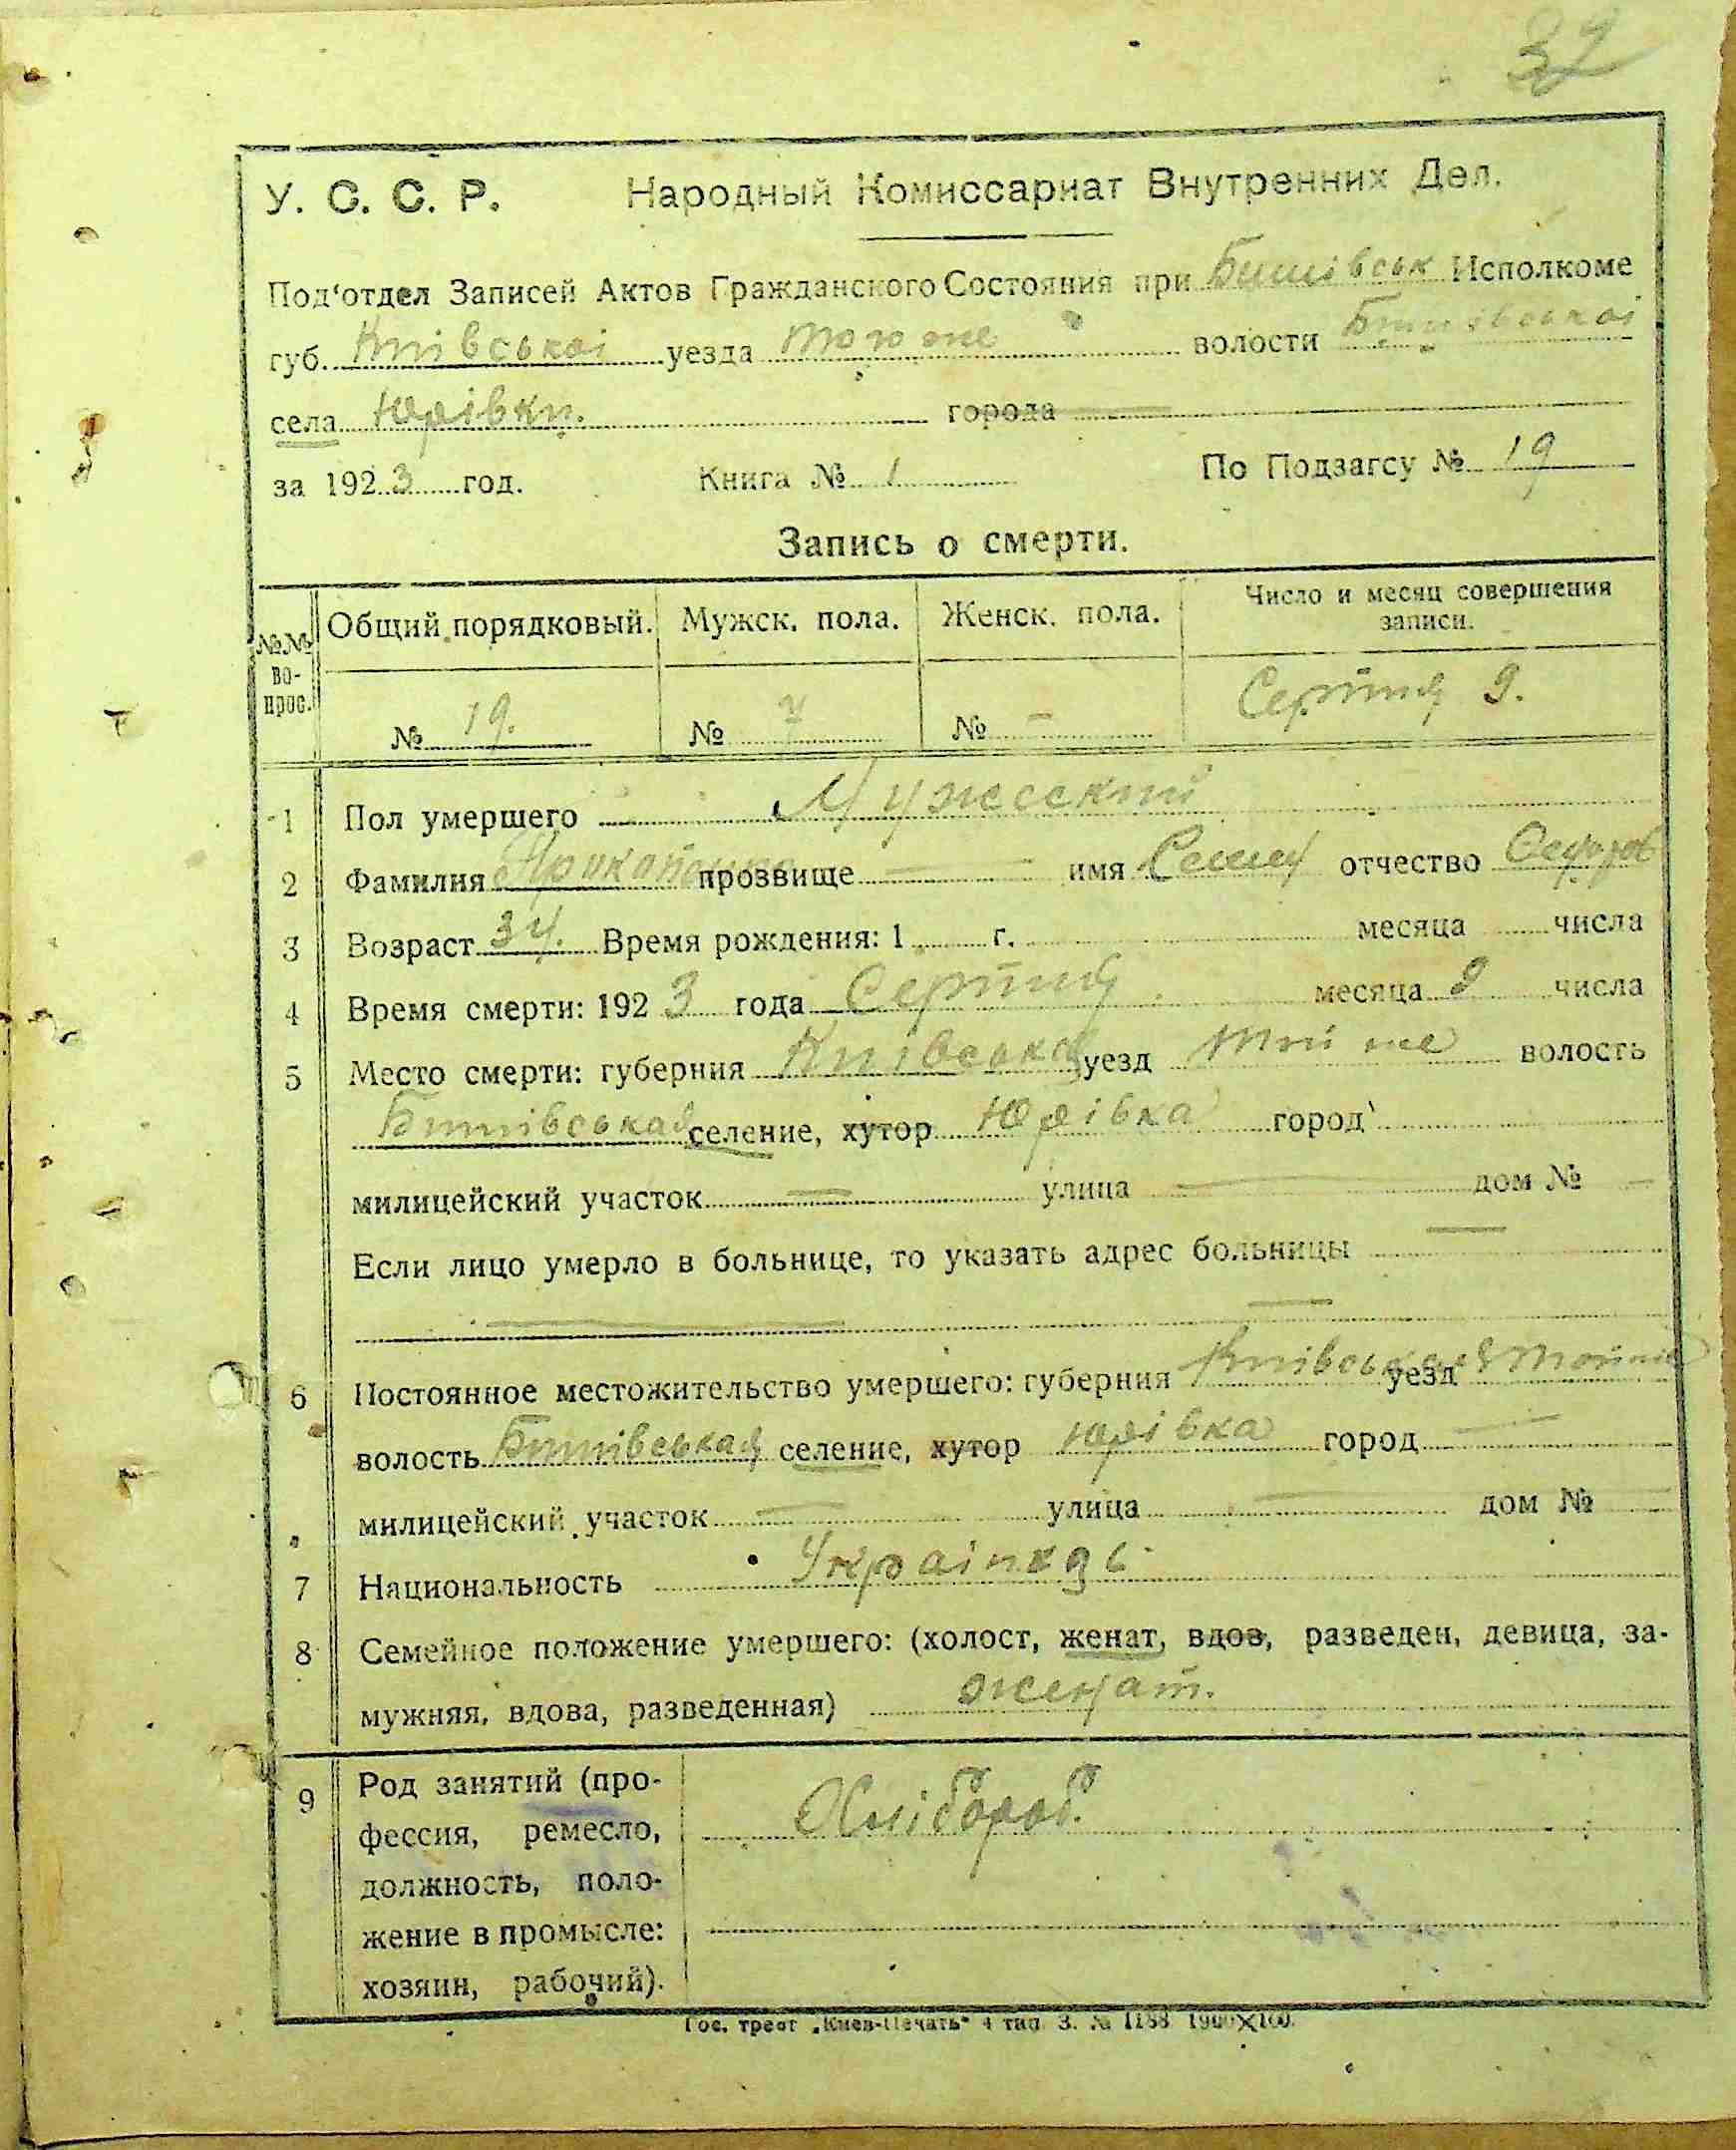 32
У. С. С. Р. Народный Комиссариат Внутренних Дел.
Под'отдел Записей Актов Гражданского Состояния при Бишівськ Исполкоме
губ. Київської уезда того же волости Бишівської
села Юрівки. города
за 1923 год. Книга № 1 По Подзагсу № 19
Запись о смерти.
№№ во-прос. Общий порядковый. Мужск. пола. Женск. пола. Число и месяц совершения записи.
№ 19. № 7 № — Серпня 9.
1 Пол умершего Мужеский
2 Фамилия прозвище — имя отчество
3 Возраст 34. Время рождения: 1 г. месяца числа
4 Время смерти: 1923 года Серпня месяца 9 числа
5 Место смерти: губерния Київська уезд той же волость
Бишівська селение, хутор Юрівка город
милицейский участок — улица — дом № —
Если лицо умерло в больнице, то указать адрес больницы —
6 Постоянное местожительство умершего: губерния Київская уезд той же
волость Бишівськая селение, хутор Юрівка город —
милицейский участок — улица — дом № —
7 Национальность Україньць
8 Семейное положение умершего: (холост, женат, вдов, разведен, девица, за-
мужняя, вдова, разведенная) женат.
9 Род занятий (про- Хлібороб.
фессия, ремесло,
должность, поло-
жение в промысле:
хозяин, рабочий).
Гос. трест „Киев-Печать" 4 тип. З. № 1188 1900×100.